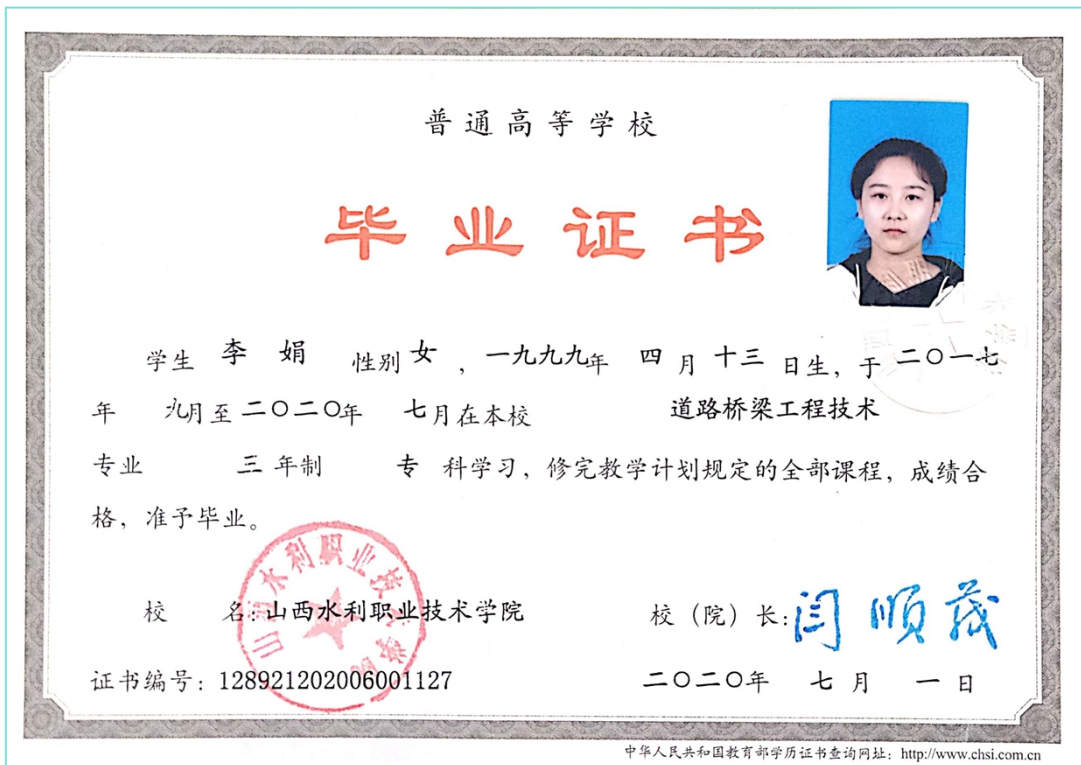 普通高等学校
毕业证书
学生 李娟 性别 女 , 一九九九年 四 月 十三 日生, 于 二〇一七
年 九月至二〇二〇年 七月在本校 道路桥梁工程技术
专业 三 年制 专 科学习, 修完教学计划规定的全部课程, 成绩合
格, 准予毕业。
校 名: 山西水利职业技术学院 校（院）长: 闫顺茂
山西水利职业技术学院
证书编号: 128921202006001127 二〇二〇年 七 月 一 日
中华人民共和国教育部学历证书查询网址: http://www.chsi.com.cn